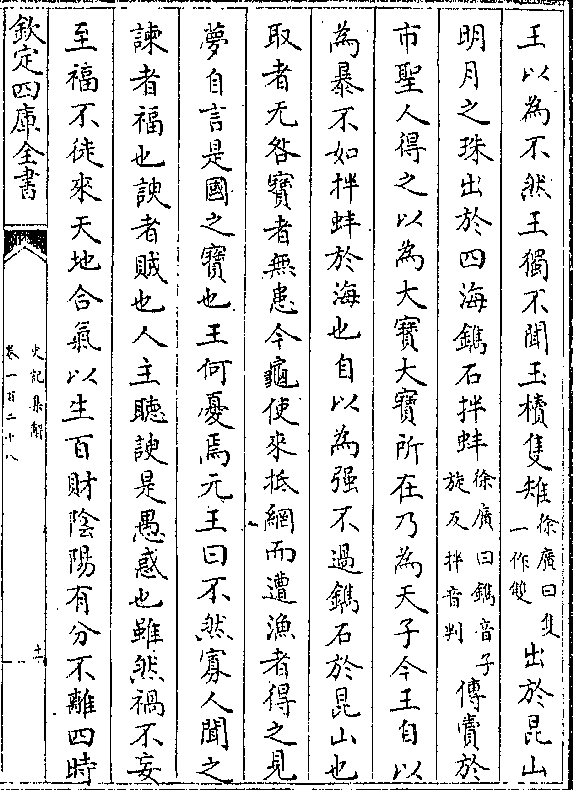 王以為不然王獨不聞玉櫝隻雉徐廣曰隻一作雙出於昆山
明月之珠出於四海鐫石拌蚌徐廣曰鐫音子旋反拌音判傳賣於
市聖人得之以為大寶大寶所在乃為天子今王自以
為暴不如拌蚌於海也自以為强不過鐫石於昆山也
取者无咎寶者無患今龜使來抵網而遭漁者得之見
夢自言是國之寶也王何憂焉元王曰不然寡人聞之
諫者福也諛者賊也人主聽諛是愚惑也雖然禍不妄
至福不徒來天地合氣以生百財陰陽有分不離四時
欽定四庫全書
史記集解
卷一百二十八
十一